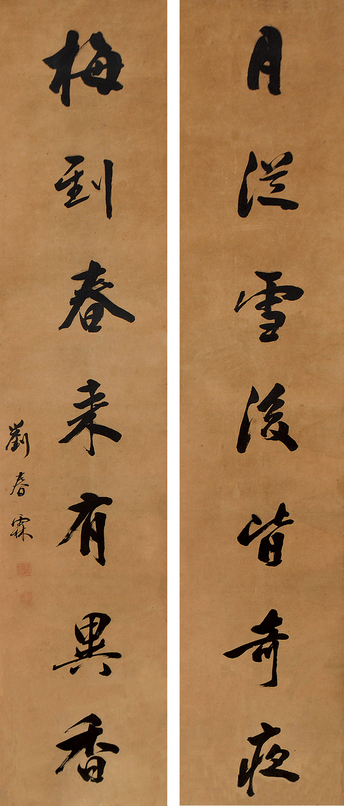 月從雪後皆奇夜
梅到春來有異香
劉春霖